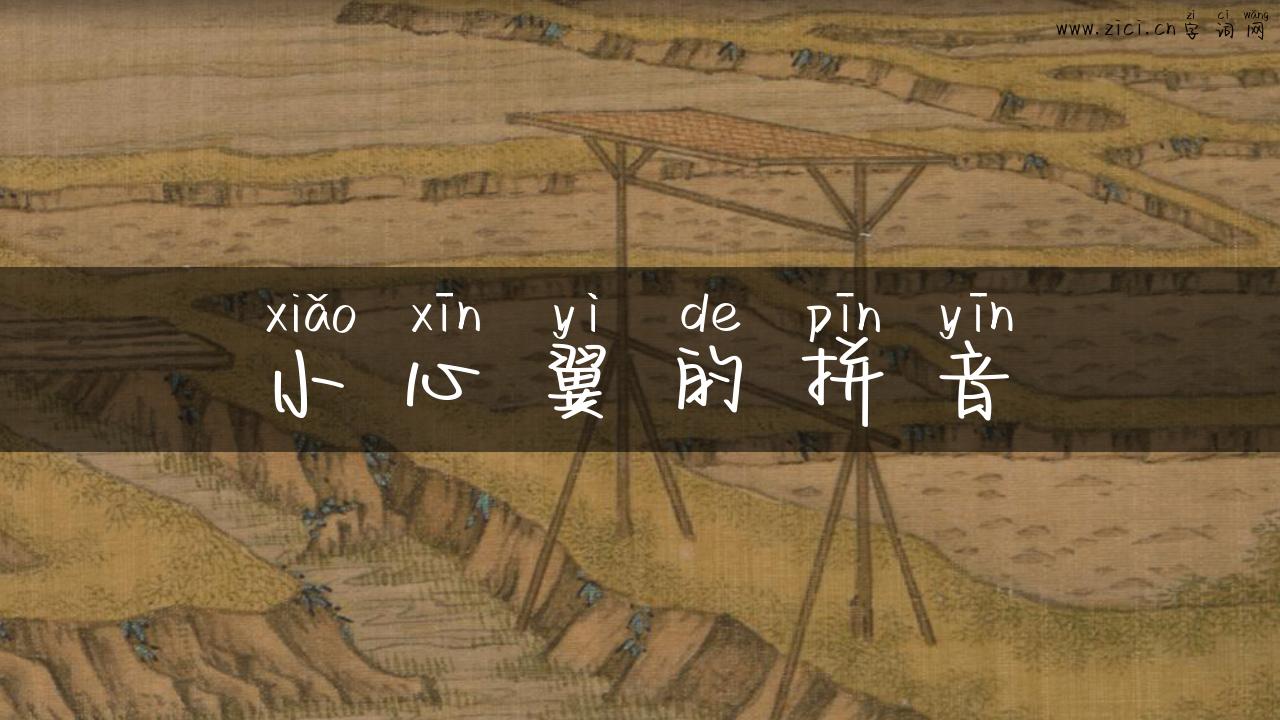 zì cí wǎng
www.zici.cn 字词网
xiǎo xīn yì de pīn yīn
小心翼的拼音